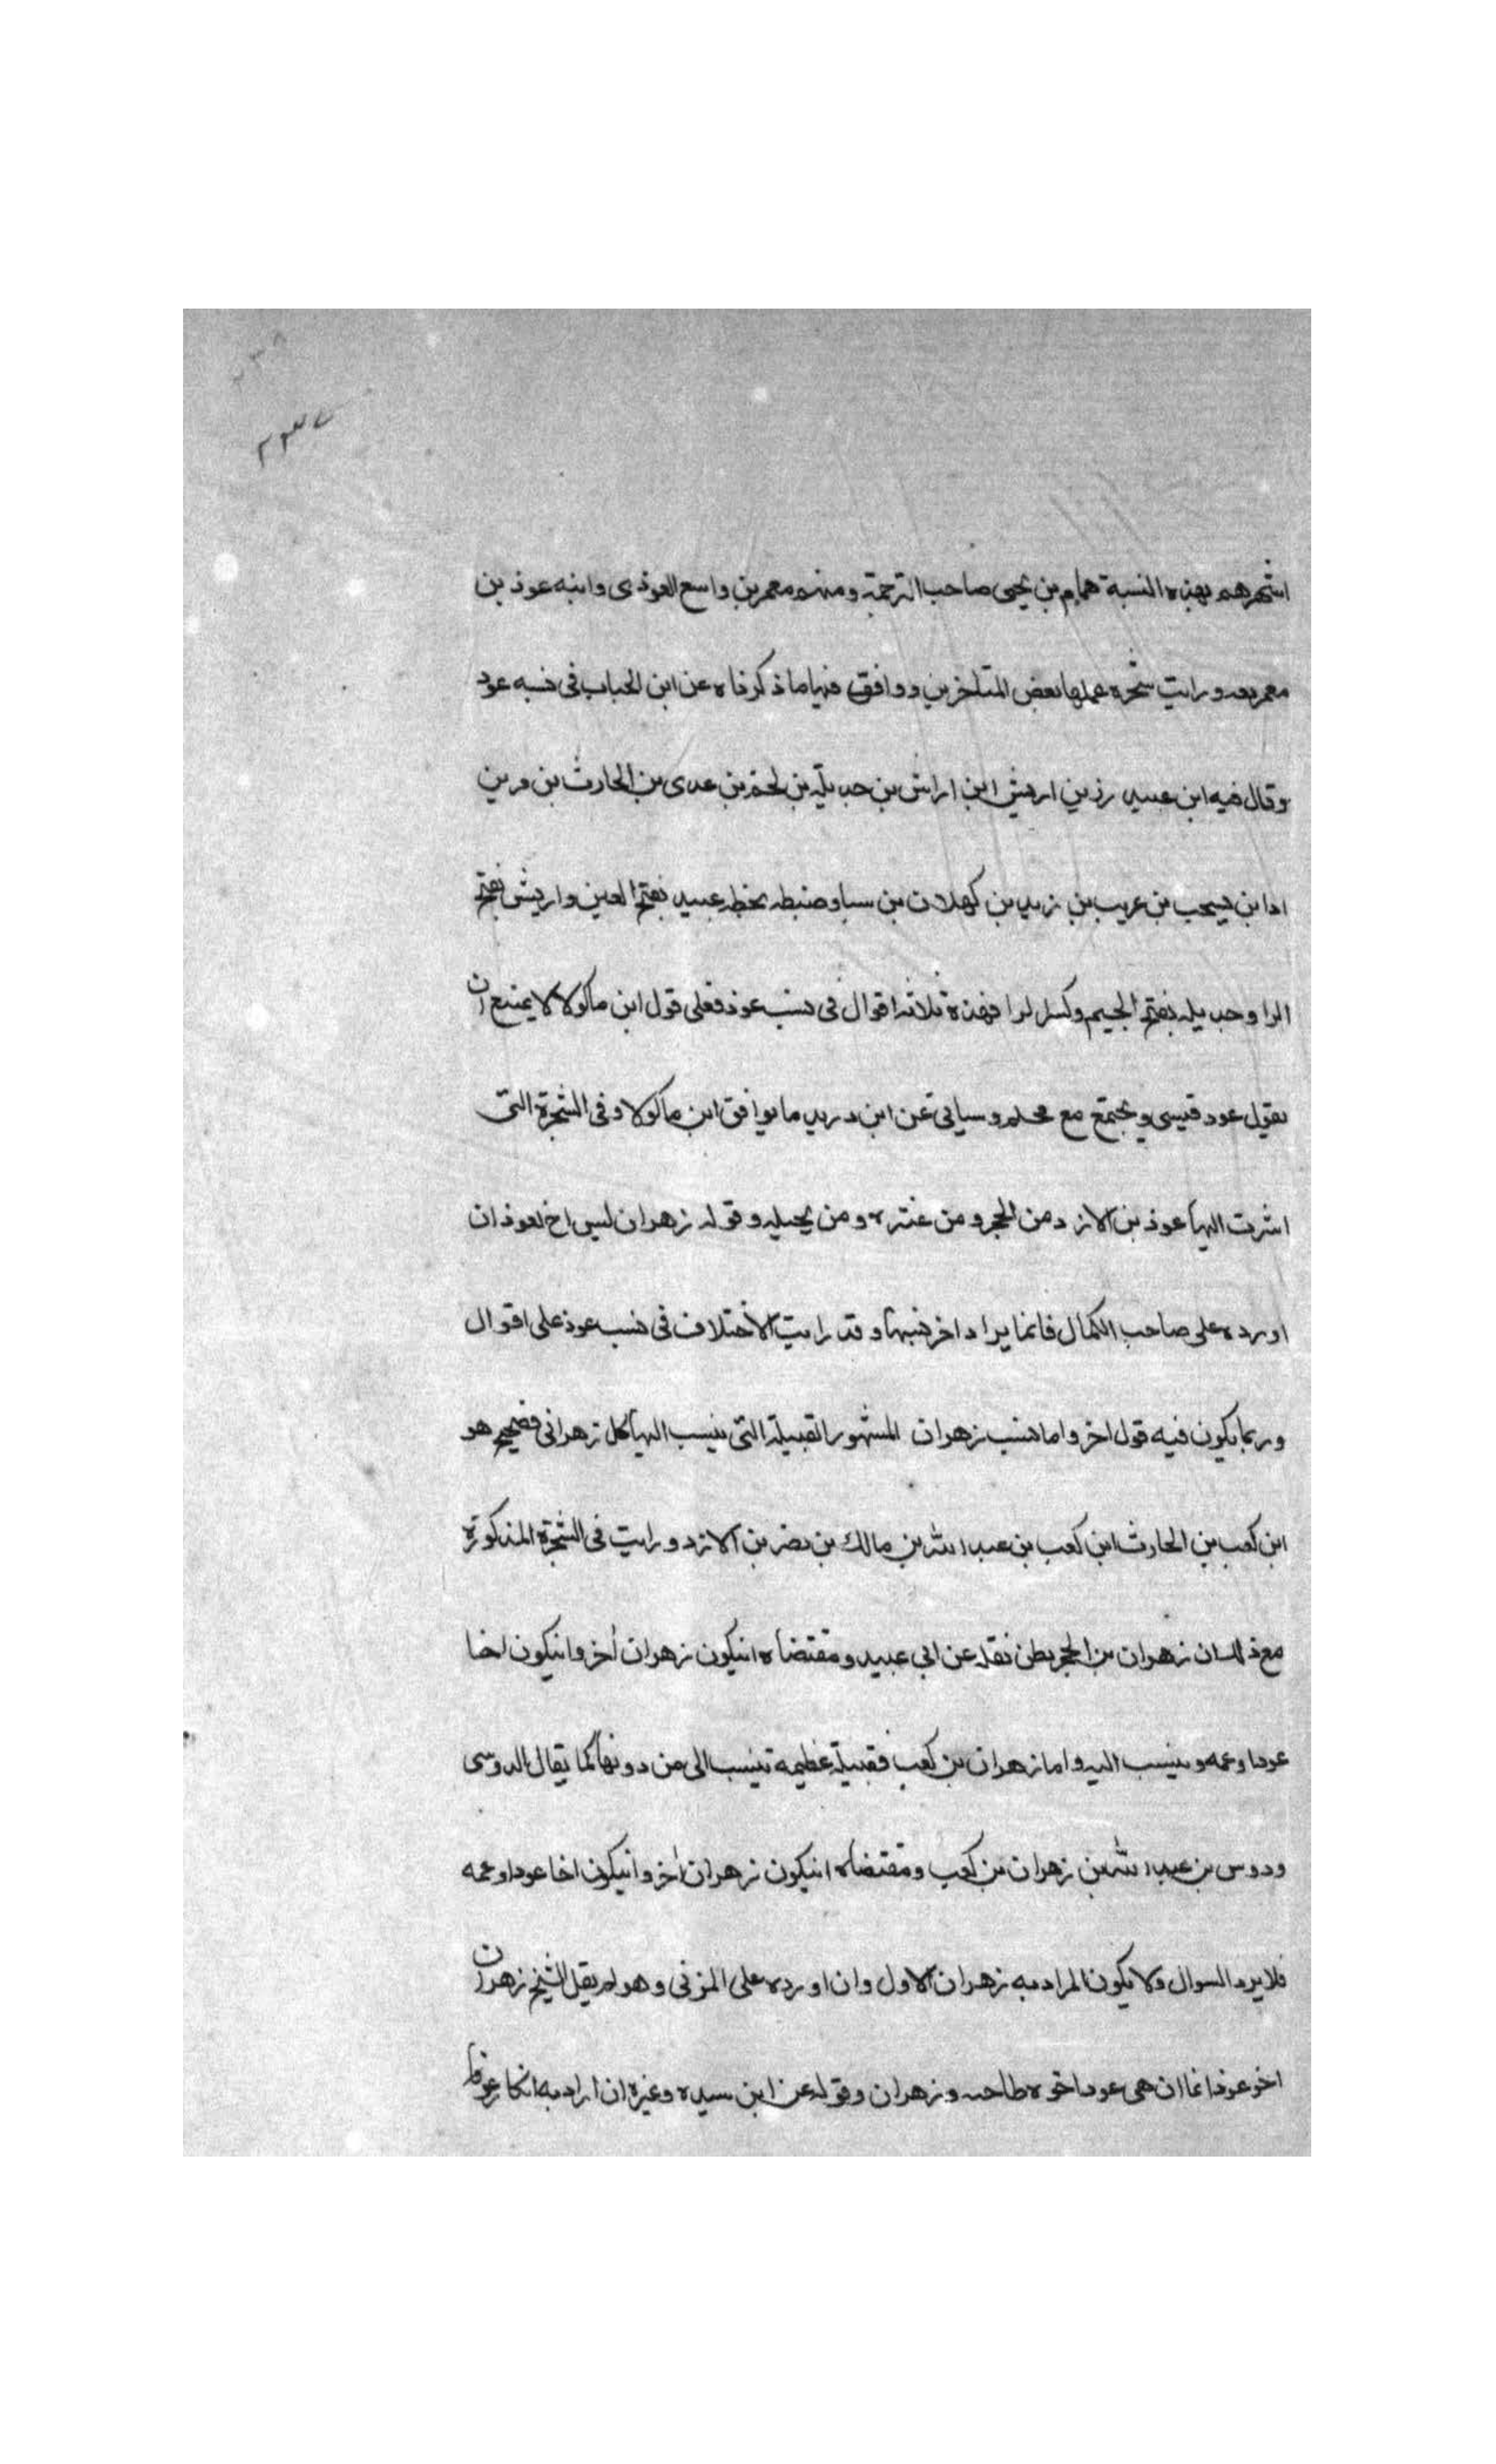 ٢٣٧
اشهرهم بهذه النسبة همام بن يحيى صاحب الترجمة ومنهم معمر بن واسع العوذى وابنه عوذ بن
معمر بعد ورايت شجره عملها بعض المتاخرين ووافق فيها ما ذكرناه عن ابن الحباب فى نسبه عود
وقال فيه ابن عبيد رزين اريش ابن اراش بن جديلة بن لخم بن عدى بن الحارث بن مر بن
ادا بن يسحب بن عريب بن زيد بن كهلان بن سبا وضبطه بخطه عبيد بفتح العين واريش بفتح
الرا وجديله بفتح الجيم وكسر الرا فهذه ثلاثه اقوال فى نسب عوذ فعلى قول ابن ماكولا لا يمتنع ان
يقول عود قيسى ويجتمع مع محلم وسياتى عن ابن دريد ما يوافق ابن ماكولا وفى الشجرة التى
اشرت اليها عوذ بن الازد من الحجر ومن عنتره ومن بجيله وقوله زهران ليس اخ لعوذ ان
اورده على صاحب الكمال فانما يراد اخر منبها وقد رايت الاختلاف فى نسب عوذ على اقوال
وربما يكون فيه قول اخر واما نسب زهران المشهور القبيلة التى ينسب اليها كل زهرانى فصحيح هو
ابن كعب بن الحارث ابن كعب بن عبد الله بن مالك بن نصر بن الازد ورايت فى الشجرة المذكورة
مع ذلك ان زهران بن الحجر بطن نقله عن ابى عبيد ومقتضاه انيكون زهران اخر وانيكون اخا
عودا وعمه وينسب اليه واما زهران بن كعب فقبيلة عظيمه تنسب الى من دونها كما يقال الدوسى
ودوس بن عبد الله بن زهران بن كعب ومقتضاه انيكون زهران اخر وانيكون اخا عودا وعمه
فلا يرد السوال ولا يكون المراد به زهران الاول وان اورده على المزنى وهو لم يقل الشيخ زهران
اخو عوذ انما ان هى عود اخوه طاحيه وزهران وقوله عن ابن سيده وغيره ان اراد به انكار عوذا